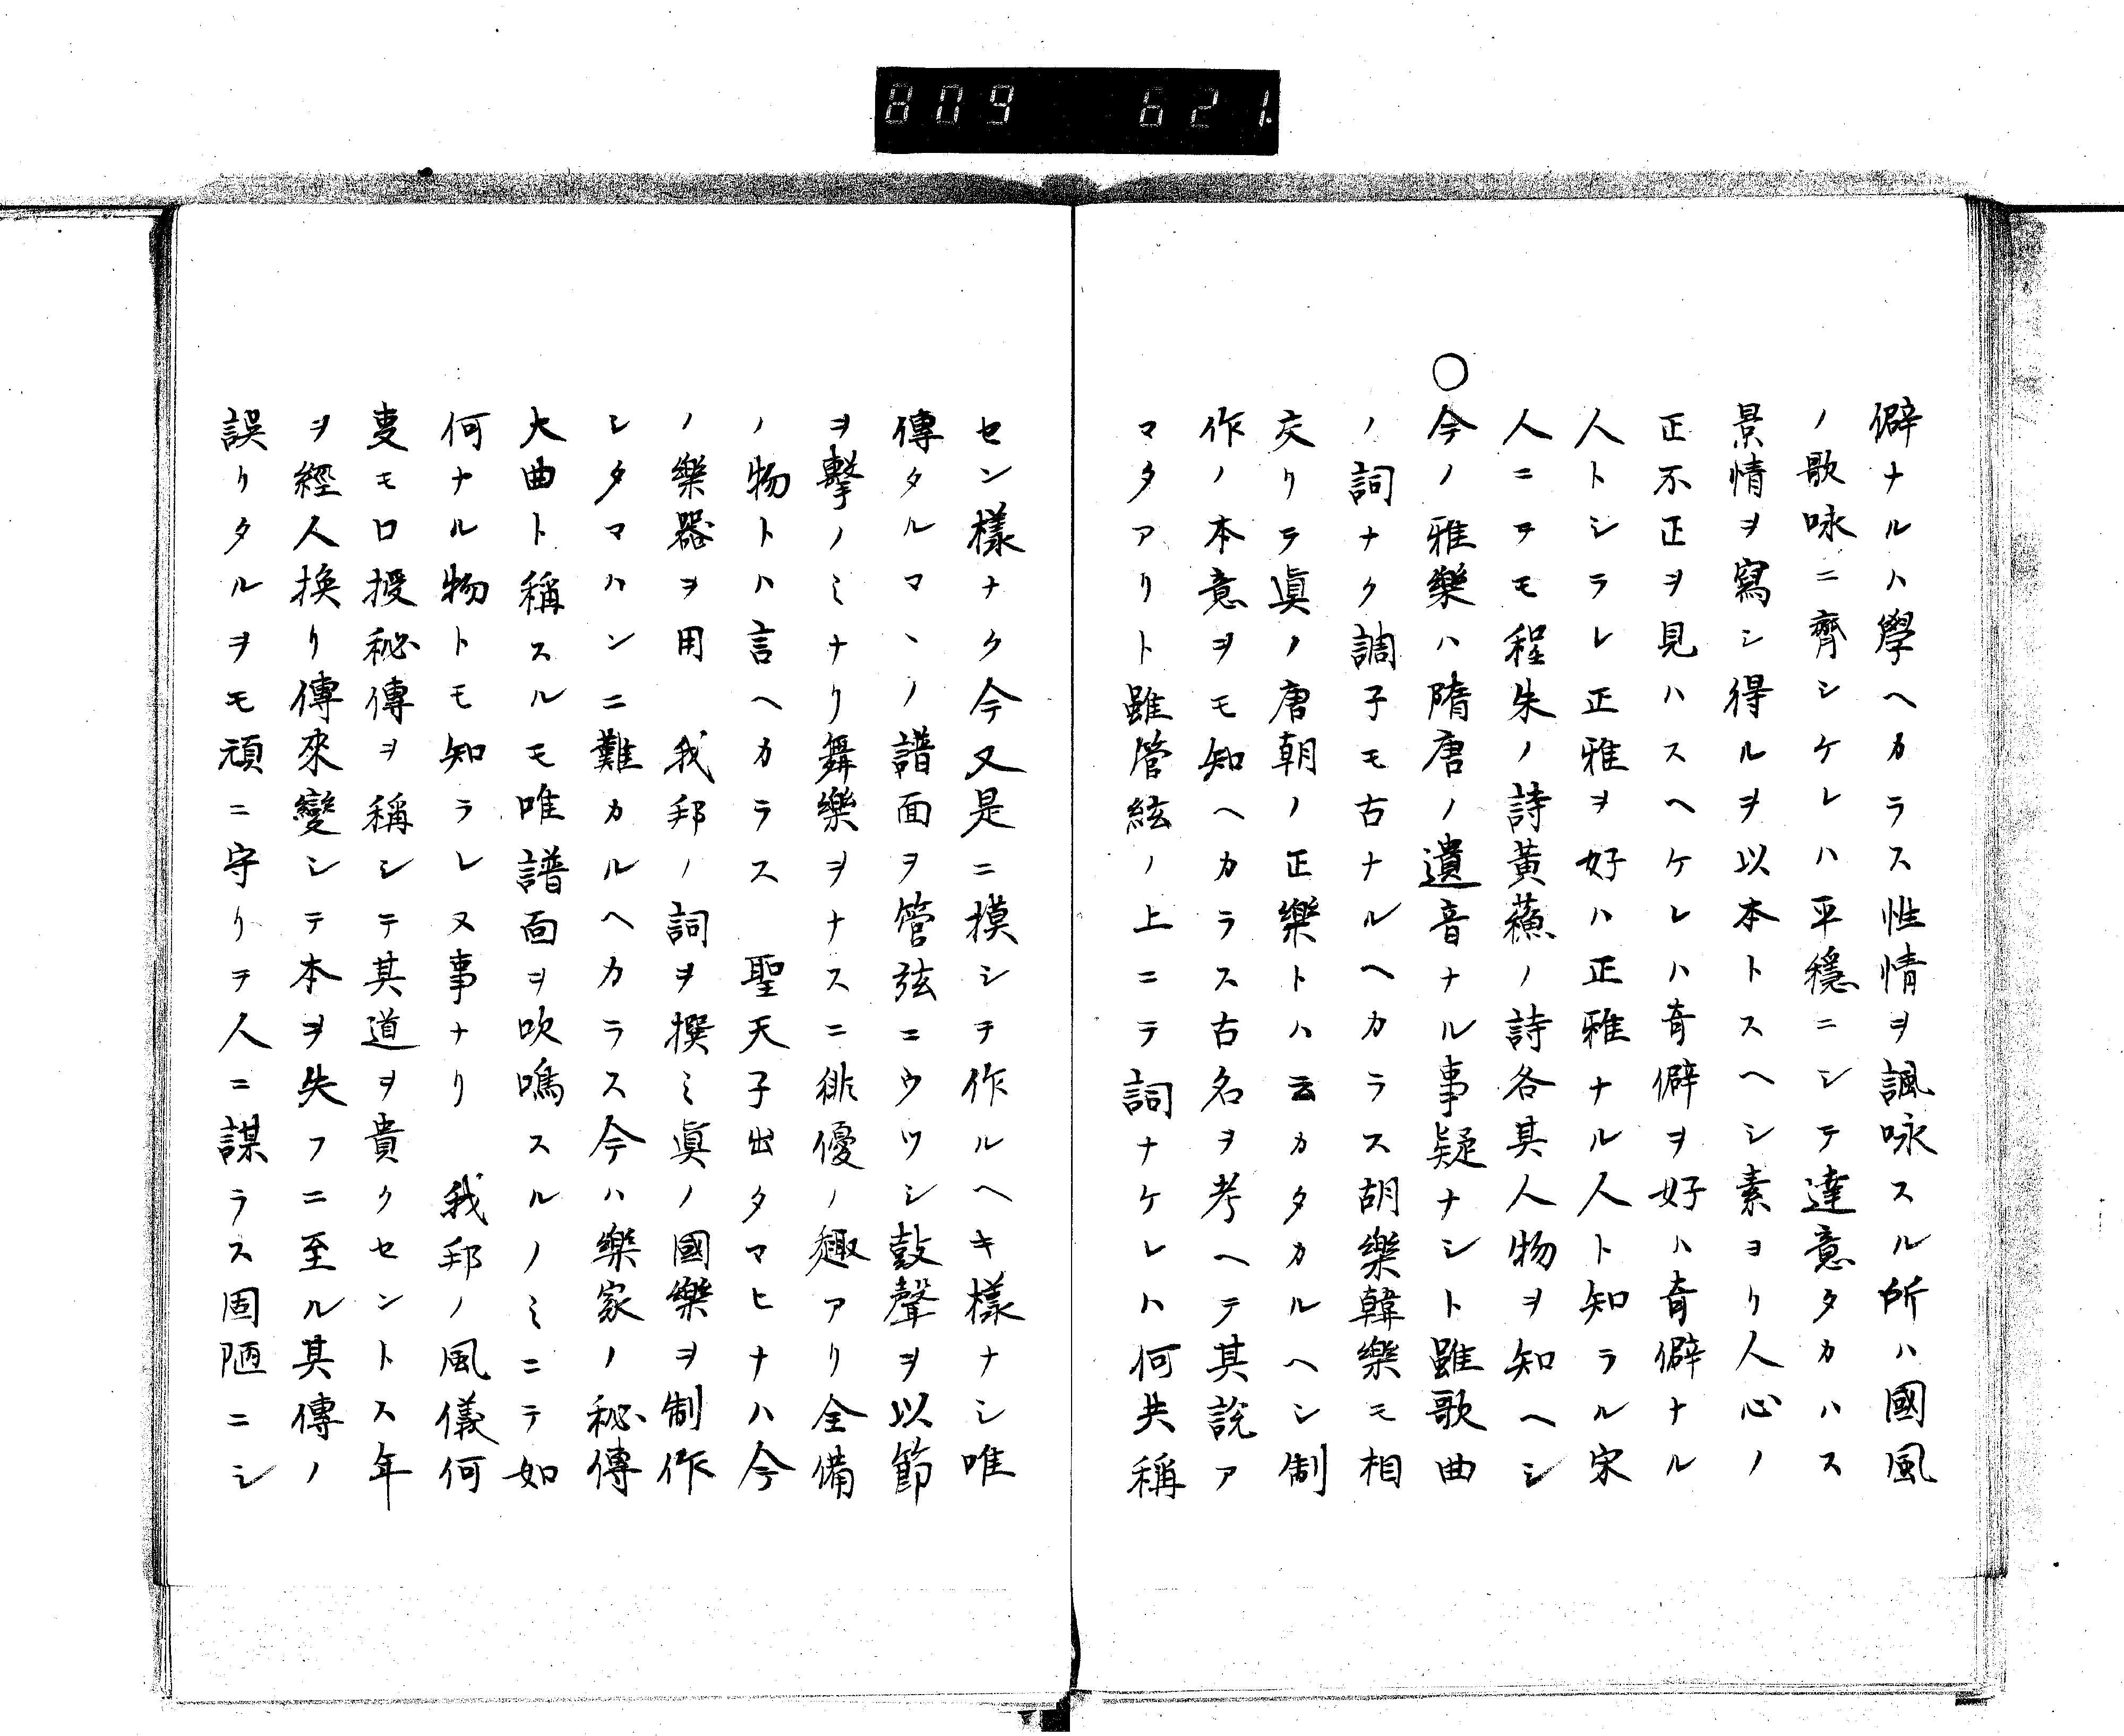 809 621
僻ナルハ學ヘカラス性情ヲ諷咏スル所ハ國風
ノ歌咏ニ齊シケレハ平穩ニシテ達意タカハス
景情ヲ寫シ得ルヲ以本トスヘシ素ヨリ人心ノ
正不正ヲ見ハスヘケレハ奇僻ヲ好ハ奇僻ナル
人トシラレ正雅ヲ好ハ正雅ナル人ト知ラル宋
人ニヲモ程朱ノ詩黃蘓ノ詩各其人物ヲ知ヘシ
○今ノ雅樂ハ隋唐ノ遺音ナル事疑ナシト雖歌曲
ノ詞ナク調子モ古ナルヘカラス胡樂韓樂モ相
交リテ眞ノ唐朝ノ正樂トハ云カタカルヘシ制
作ノ本意ヲモ知ヘカラス古名ヲ考ヘテ其說ア
マタアリト雖管絃ノ上ニテ詞ナケレハ何共稱
セン樣ナク今又是ニ摸シヲ作ルヘキ樣ナシ唯
傳タルマヽノ譜面ヲ管弦ニウツシ鼓聲ヲ以節
ヲ擊ノミナリ舞樂ヲナスニ俳優ノ趣アリ全備
ノ物トハ言ヘカラス 聖天子出タマヒナハ今
ノ樂器ヲ用 我邦ノ詞ヲ撰ミ眞ノ國樂ヲ制作
シタマハンニ難カルヘカラス今ハ樂家ノ秘傳
大曲ト稱スルモ唯譜面ヲ吹鳴スルノミニテ如
何ナル物トモ知ラレヌ事ナリ 我邦ノ風儀何
叓モ口授秘傳ヲ稱シテ其道ヲ貴クセントス年
ヲ經人換リ傳來變シテ本ヲ失フニ至ル其傳ノ
誤リタルヲモ頑ニ守リヲ人ニ謀ラス固陋ニシ